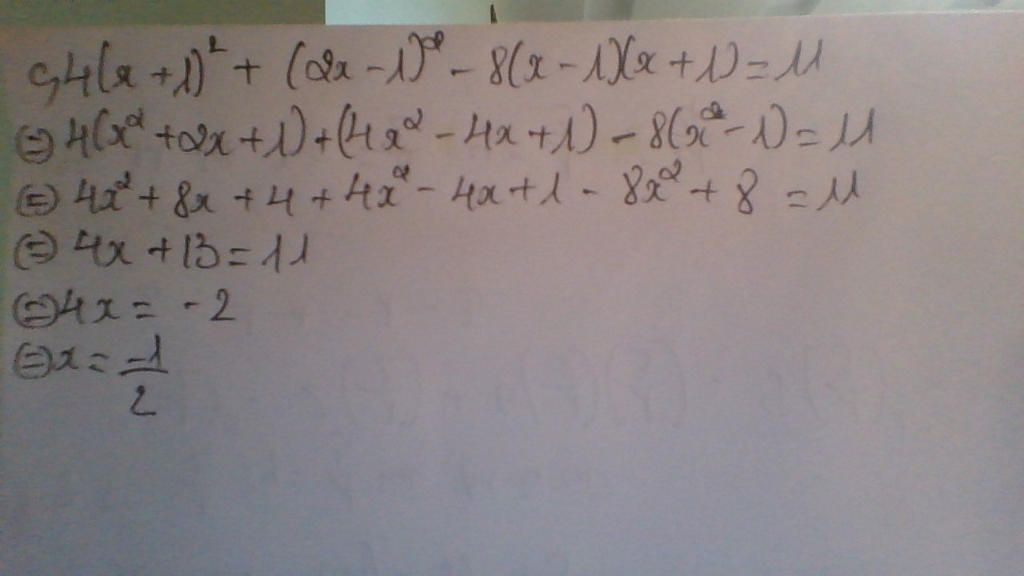 c, 4(x + 1)² + (2x - 1)² - 8(x - 1)(x + 1) = 11
⇔ 4(x² + 2x + 1) + (4x² - 4x + 1) - 8(x² - 1) = 11
⇔ 4x² + 8x + 4 + 4x² - 4x + 1 - 8x² + 8 = 11
⇔ 4x + 13 = 11
⇔ 4x = -2
⇔ x = -1/2